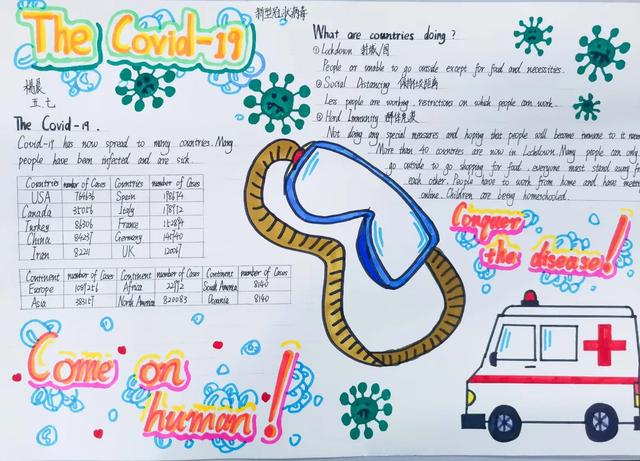 The Covid-19
新型冠状病毒
五七
The Covid-19.
Covid-19 has now spread to many countries. Many
people have been infected and are sick.
Countries number of Cases Countries number of Cases
USA 764636 Spain 198674
Canada 35056 Italy 178972
Turkey 86306 France 152894
China 84237 Germany 145740
Iran 82211 UK 120067
Continent number of Cases Continent number of Cases Continent number of Cases
Europe Africa 22992 South America 8140
Asia 383157 North America 820083 Oceania 8140
Come on
human!
What are countries doing?
①Lockdown 封城/国
People are unable to go outside except for food and necessities.
②Social Distancing 保持社交距离
Less people are working, restrictions on which people can work.
③Herd Immunity 群体免疫
Not doing any special measures and hoping that people will become immune to it
More than 40 countries are now in Lockdown. Many people can only
go outside to go shopping for food, everyone must stand away
each other. People have to work from home and have
online. Children are being homeschooled.
Conquer
the disease!